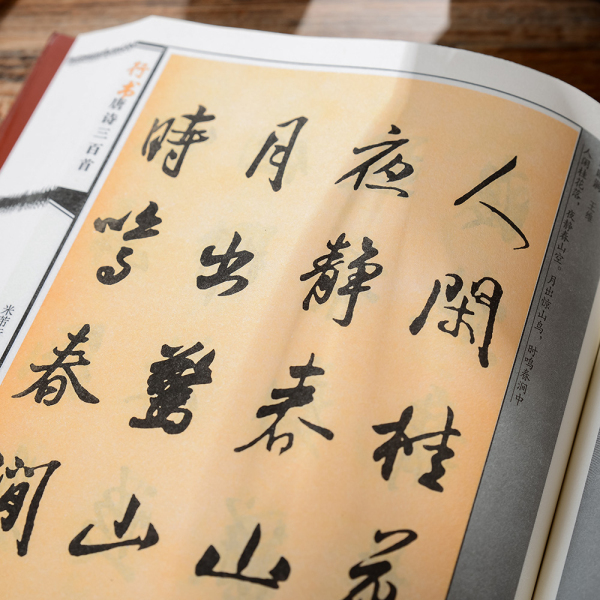 王维
人闲桂花落，夜静春山空。月出惊山鸟，时鸣春涧中
人閑桂花
夜静春山
月出驚山
時鳴春澗
行书唐诗三百首
米芾